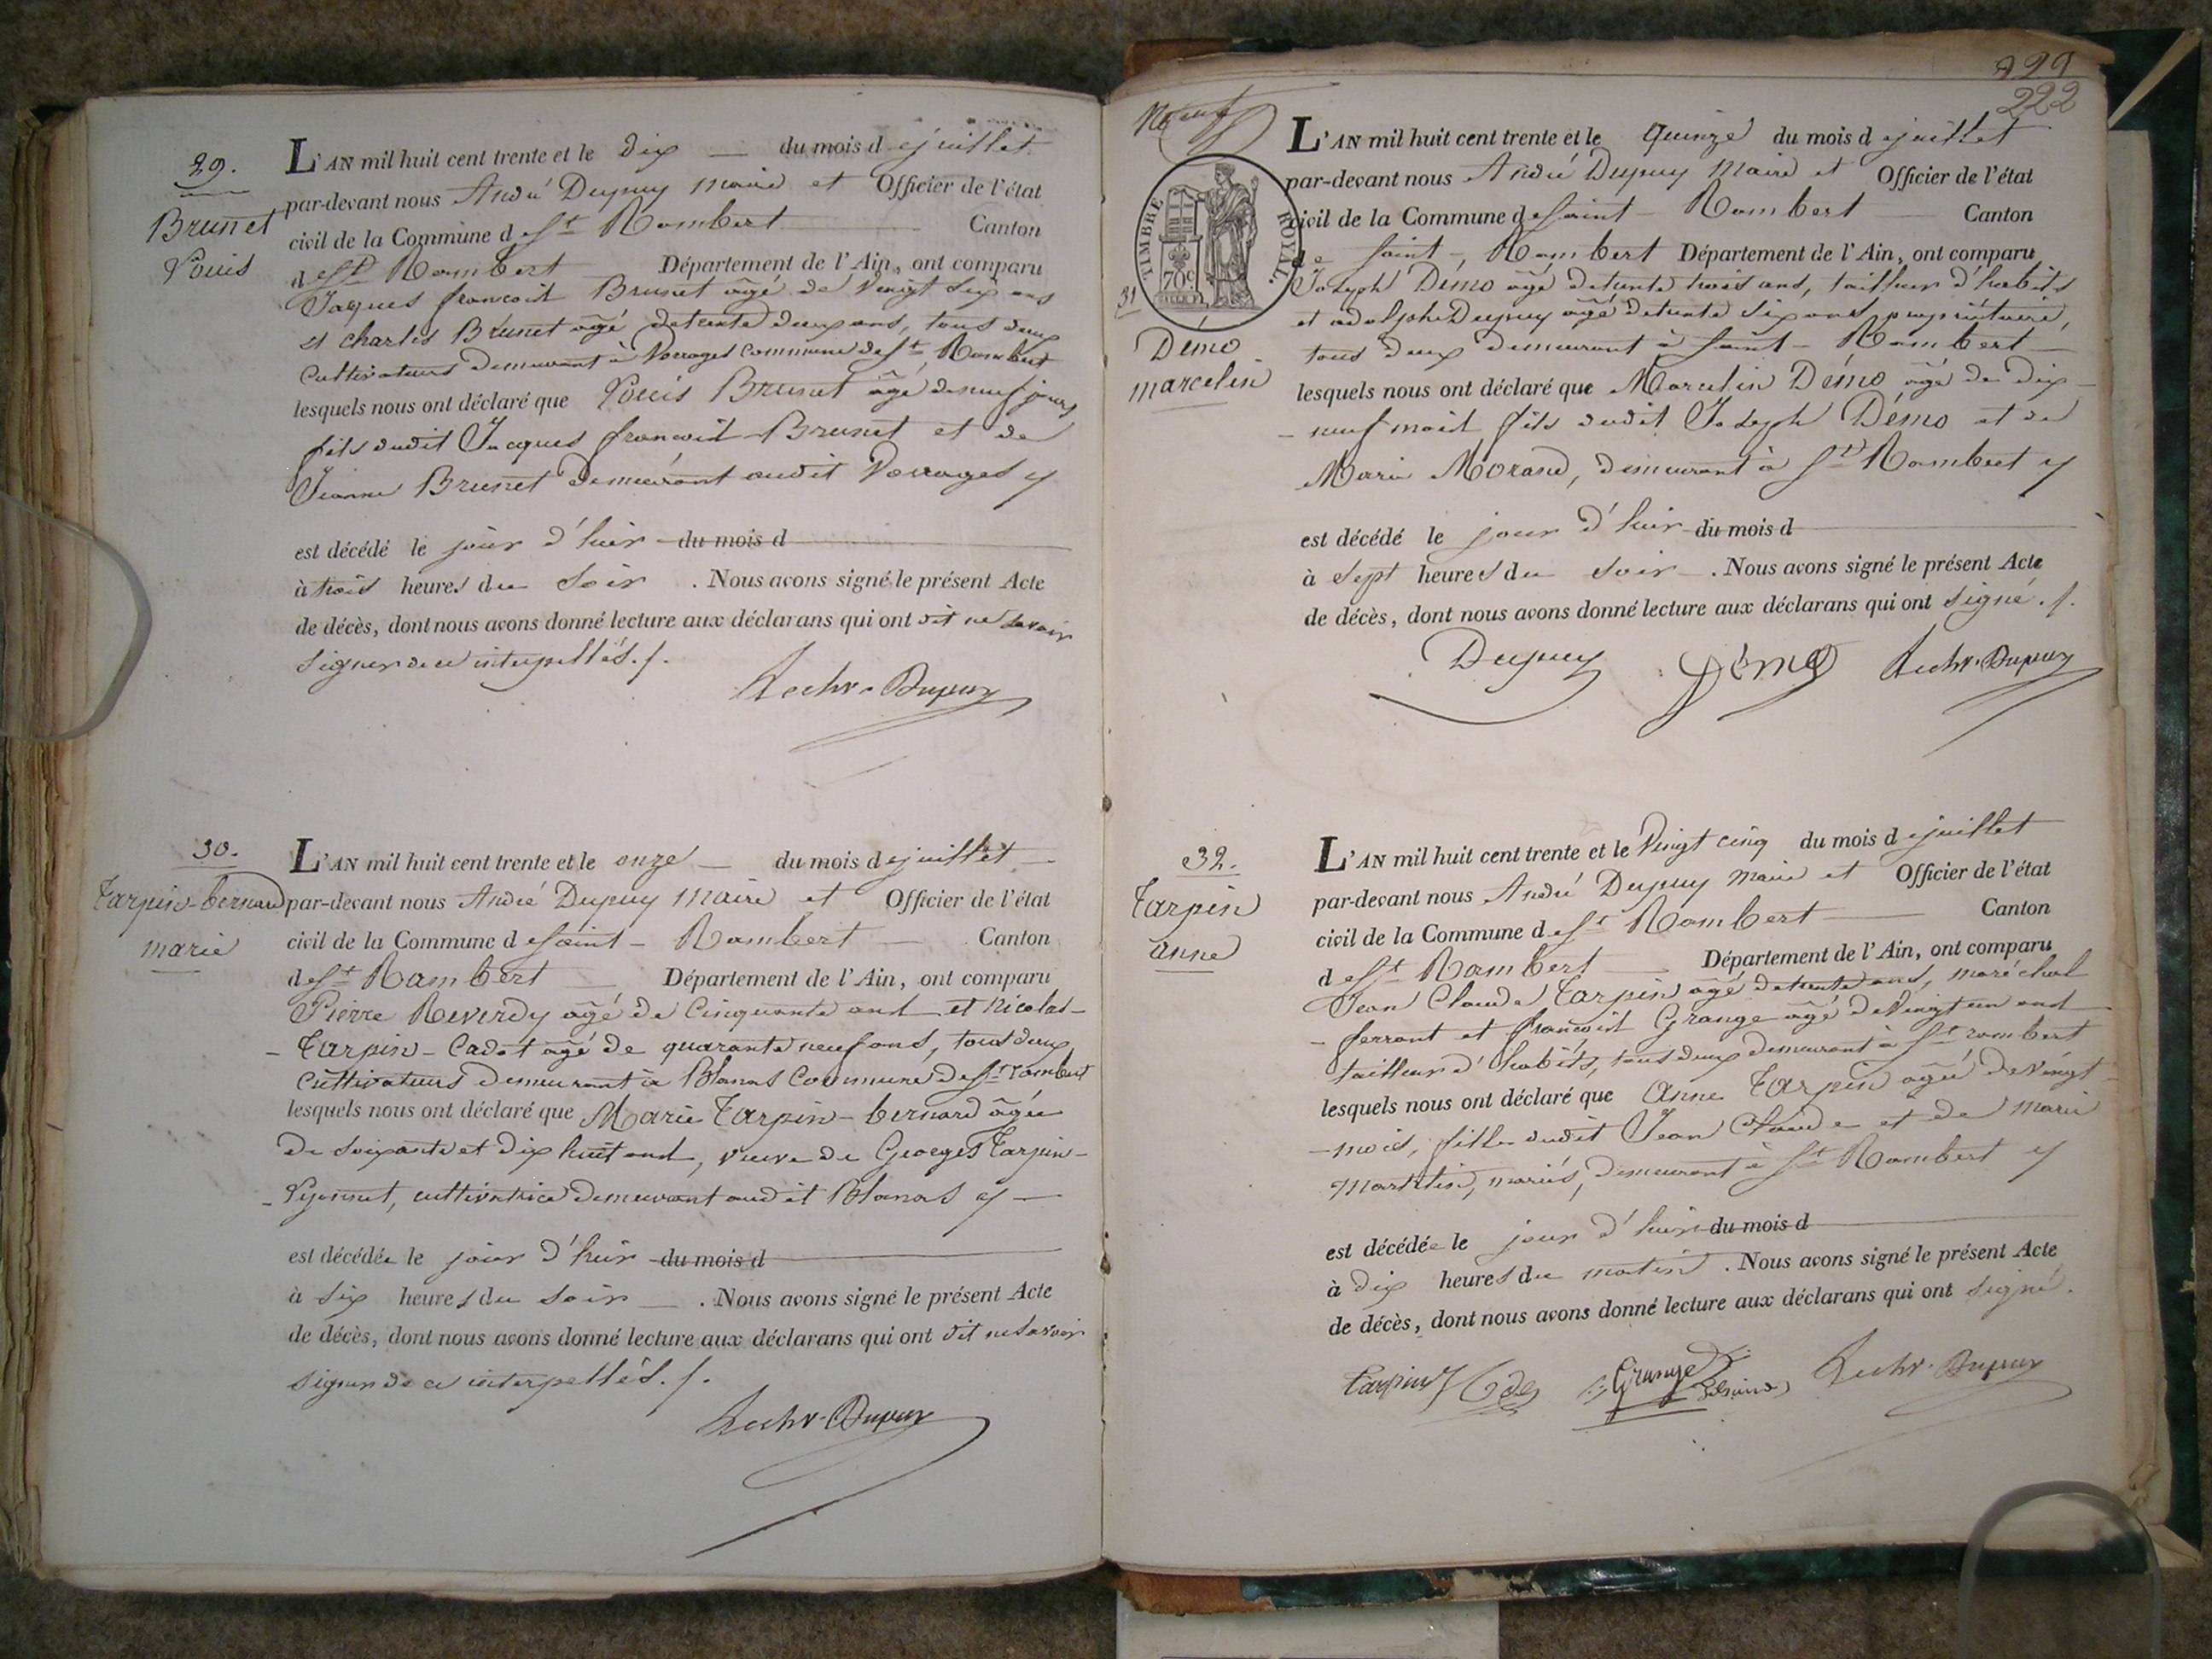 29.
Brunet
Louis
L'AN mil huit cent trente et le dix du mois de juillet
par-devant nous André Dupuy Maire et Officier de l'état
civil de la Commune de St Rambert Canton
de St Rambert Département de l'Ain, ont comparu
Jaques françois Brunet âgé de vingt six ans
et charles Brunet âgé de trente deux ans, tous deux
Cultivateurs demeurant à Vorages Commune de St Rambert
lesquels nous ont déclaré que Louis Brunet âgé de neuf jours
fils dudit Jacques françois Brunet et de
Jeanne Brunet demeurant audit Vorages
est décédé le jour d'hier du mois d
à trois heures du soir. Nous avons signé le présent Acte
de décès, dont nous avons donné lecture aux déclarans qui ont dit ne savoir
signer de ce interpellés./.
Dupuy
30.
Tarpin-bernard
marie
L'AN mil huit cent trente et le onze du mois de juillet
par-devant nous André Dupuy Maire et Officier de l'état
civil de la Commune de Saint-Rambert Canton
de St Rambert Département de l'Ain, ont comparu
Pierre Reverdy âgé de Cinquante ans et Nicolas-
-Tarpin-Cadet âgé de quarante neuf ans, tous deux
Cultivateurs demeurant à Blanas Commune de St rambert
lesquels nous ont déclaré que Marie Tarpin-bernard âgée
de soixante et dix huit ans, veuve de Georges Tarpin-
-Peyonnet, cultivatrice demeurant audit Blanas
est décédée le jour d'hier du mois d
à six heures du soir. Nous avons signé le présent Acte
de décès, dont nous avons donné lecture aux déclarans qui ont dit ne savoir
signer de ce interpellés./.
Dupuy
222
TIMBRE ROYAL.
70c.
31
Démo
marcelin
L'AN mil huit cent trente et le quinze du mois de juillet
par-devant nous André Dupuy Maire et Officier de l'état
civil de la Commune de Saint-Rambert Canton
de Saint-Rambert Département de l'Ain, ont comparu
Joseph Démo âgé de trente trois ans, tailleur d'habits
et adolphe Dupuy âgé de trente six ans, propriétaire,
tous deux demeurant à Saint-Rambert
lesquels nous ont déclaré que Marcelin Démo âgé de dix-
-neuf mois fils dudit Joseph Démo et de
Marie Morand, demeurant à St Rambert
est décédé le jour d'hier du mois d
à sept heures du soir. Nous avons signé le présent Acte
de décès, dont nous avons donné lecture aux déclarans qui ont signé./.
Dupuy Démo Dupuy
32.
Tarpin
anne
L'AN mil huit cent trente et le Vingt cinq du mois de juillet
par-devant nous André Dupuy Maire et Officier de l'état
civil de la Commune de St Rambert Canton
de St Rambert Département de l'Ain, ont comparu
Jean Claude Tarpin âgé de trente ans, maréchal
-ferrant et françois Grange âgé de vingt un ans
tailleur d'habits, tous deux demeurant à St rambert
lesquels nous ont déclaré que Anne Tarpin âgée de vingt-
-mois, fille dudit Jean Claude et de Marie
Martelin, mariés, demeurant à St Rambert
est décédée le jour d'hier du mois d
à dix heures du matin. Nous avons signé le présent Acte
de décès, dont nous avons donné lecture aux déclarans qui ont signé.
Tarpin Grange Dupuy